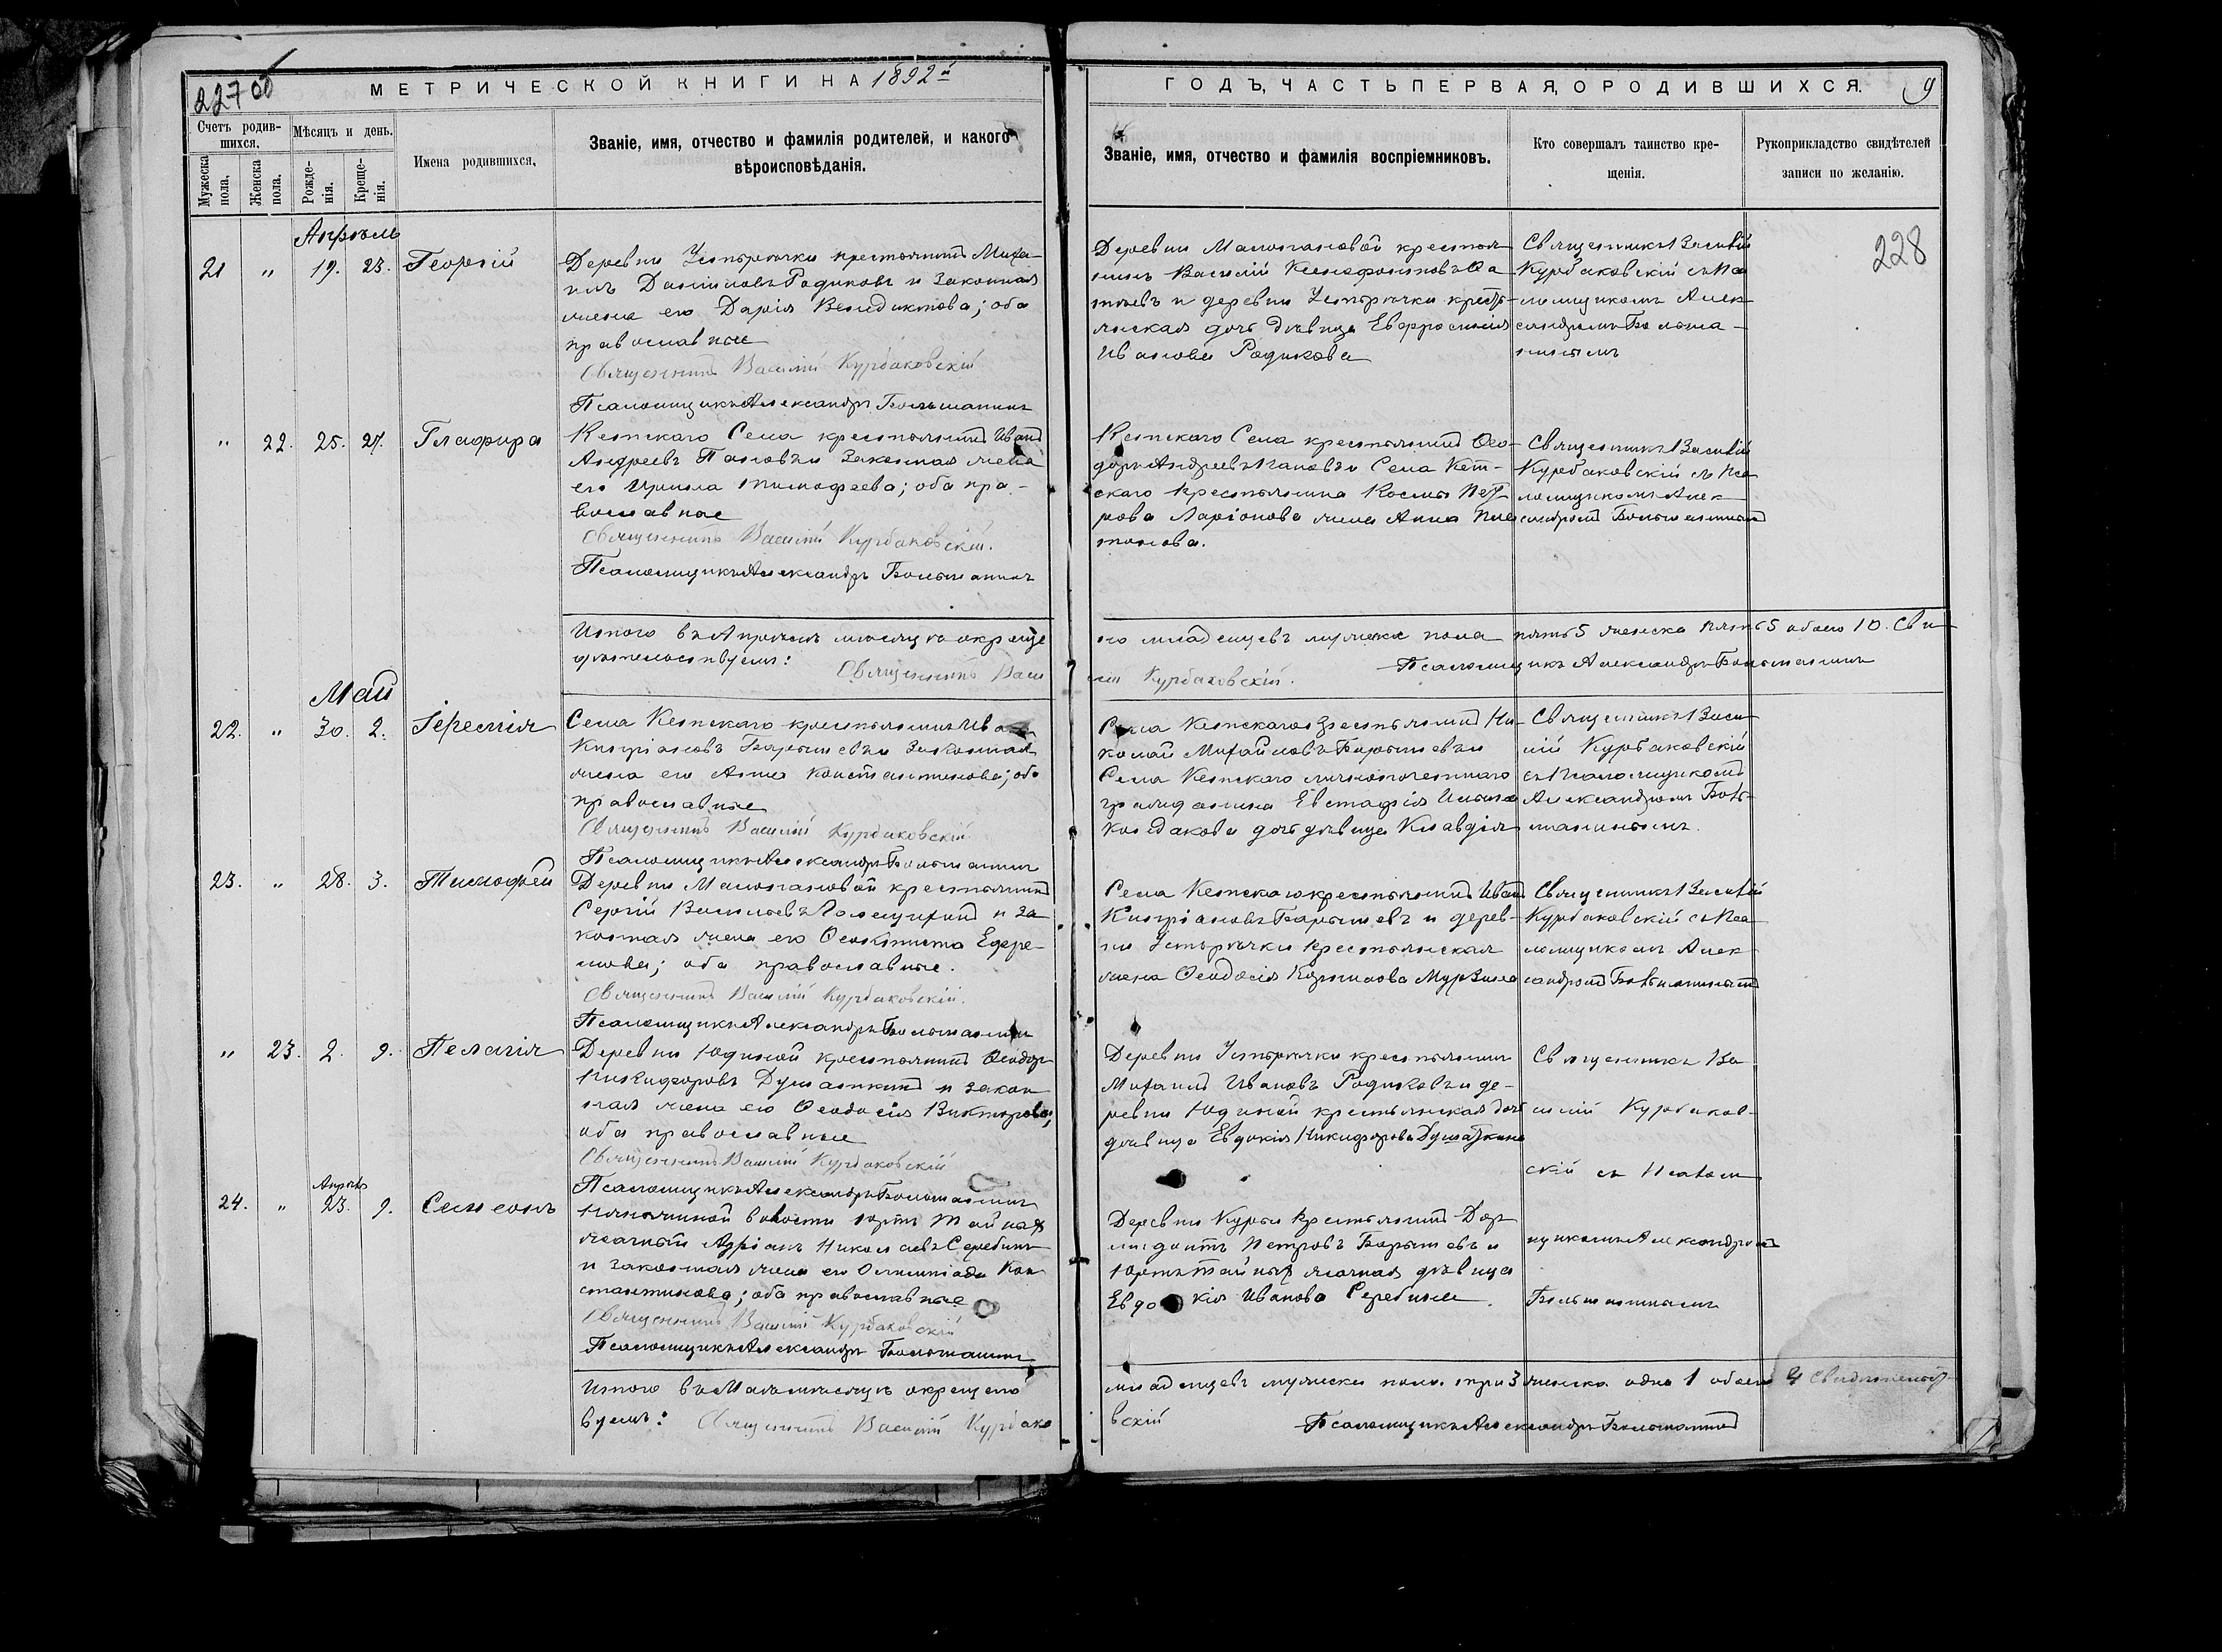 227 об
МЕТРИЧЕСКОЙ КНИГИ НА 1892й
ГОДЪ, ЧАСТЬ ПЕРВАЯ, О РОДИВШИХСЯ.
9
228
Счетъ родив-
шихся.
Мужеска пола.
Женска пола.
Мѣсяцъ и день.
Рожде-
нія.
Креще-
нія.
Имена родившихся.
Званіе, имя, отчество и фамилія родителей, и какого
вѣроисповѣданія.
Званіе, имя, отчество и фамилія воспріемниковъ.
Кто совершалъ таинство кре-
щенія.
Рукоприкладство свидѣтелей
записи по желанію.
Апрѣль
21 " 19. 23. Георгій
Деревни Устьрѣчки крестьянинъ Миха-
илъ Даниловъ Родиковъ и законная
жена его Дарія Венедиктова; оба
православные
Священникъ Василій Курбаковскій
Псаломщикъ Александръ Большанинъ
Деревни крестья
нинъ Василій Ксенофонтовъ
и деревни Устьрѣчки кресть-
янская дочь дѣвица Евфросинія
Иванова Родикова
Священникъ Василій
Курбаковскій съ Пса
ломщикомъ Алек-
сандромъ Больша-
нинымъ
" 22. 25. 27. Глафира
Кетскаго Села крестьянинъ Иванъ
Андреевъ Пановъ и законная жена
его Ирина Тимофеева; оба пра-
вославные
Священникъ Василій Курбаковскій.
Псаломщикъ Александръ Большанинъ
Кетскаго Села крестьянинъ Ѳео-
доръ Андреевъ Пановъ и Села Кет-
скаго крестьянина Космы Пет
рова Ларіонова жена Анна Пла
тонова.
Священникъ Василій
Курбаковскій съ Пса
ломщикомъ Алек-
сандромъ Большанинымъ
Итого въ Апрѣлѣ мѣсяцѣ окреще
но младенцевъ мужеска пола пять 5 женска пять 5 обоего 10. Сви
дѣтельствуемъ: Священникъ Васи
лій Курбаковскій. Псаломщикъ Александръ Большанинъ
Май
22. " 30. 2. Іеремія
Села Кетскаго крестьянинъ Иванъ
Кипріановъ Барышевъ и законная
жена его Анна Константинова; оба
православные
Священникъ Василій Курбаковскій
Псаломщикъ Александръ Большанинъ
Села Кетскаго крестьянинъ Ни-
колай Михайловъ Барышевъ и
Села Кетскаго личнопочетнаго
гражданина Евстафія Ильина
Колдакова дочь дѣвица Клавдія
Священникъ Васи
лій Курбаковскій
съ Псаломщикомъ
Александромъ Боль-
шанинымъ.
23. " 28. 3. Тимофей
Деревни крестьянинъ
Сергій Васильевъ и за
конная жена его Ѳеоктиста Ефре-
мова; оба православные.
Священникъ Василій Курбаковскій.
Псаломщикъ Александръ Большанинъ
Села Кетскаго крестьянинъ Иванъ
Кипріановъ Барышевъ и дерев-
ни Устьрѣчки крестьянская
жена Ѳеодосія Корнилова Мурзина
Священникъ Василій
Курбаковскій съ Пса
ломщикомъ Алек-
сандромъ Большанинымъ
" 23. 2. 9. Пелагія
Деревни Юдиной крестьянинъ Ѳеодоръ
Никифоровъ Душаткинъ и закон
ная жена его Ѳеодосія Викторова,
оба православные
Священникъ Василій Курбаковскій
Псаломщикъ Александръ Большанинъ
Деревни Устьрѣчки крестьянинъ
Михаилъ Ивановъ Родиковъ и де-
ревни Юдиной крестьянская дочь
дѣвица Евдокія Никифорова Душаткина
Священникъ Ва
силій Курбаков-
скій съ Псалом
щикомъ Александромъ
Большанинымъ
Апрѣль
24. " 23. 9. Симеонъ
волости юртъ Тайныхъ
ясачный Адріанъ Николаевъ Серебинъ
и законная жена его Олимпіада Кон
стантинова; оба православные
Священникъ Василій Курбаковскій
Псаломщикъ Александръ Большанинъ
Деревни Курьи крестьянинъ Дор
мидонтъ Петровъ Барышевъ и
Юртъ Тайныхъ ясачная дѣвица
Евдокія Иванова Серебина.
Итого въ Маѣ мѣсяцѣ окрещено
младенцевъ мужеска пола три 3 женска одна 1 обоего 4 Свидѣтельст-
вуемъ: Священникъ Василій Курбако
вскій Псаломщикъ Александръ Большанинъ